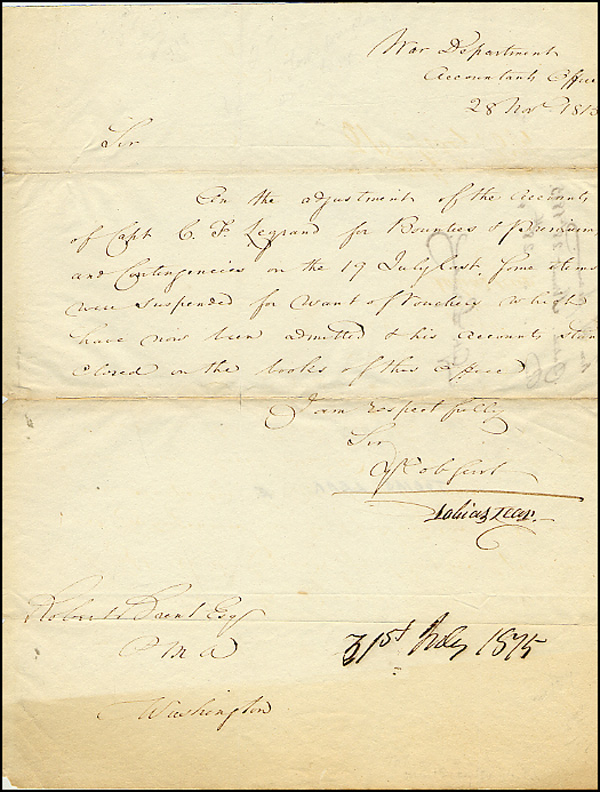 War Department
Accountants Office
28 Novr. 1815
Sir
On the adjustment of the Accounts
of Capt C. F. Legrand for Bounties & Premiums
and Contingencies on the 19 July last, Some items
were suspended for want of Vouchers which
have now been admitted & his Accounts Stand
Closed on the books of this Office
I am respectfully
Sir
Yr Ob Servt
Tobias Lear
Robert Brent Esqr
P M A
Washington
31st July 1875